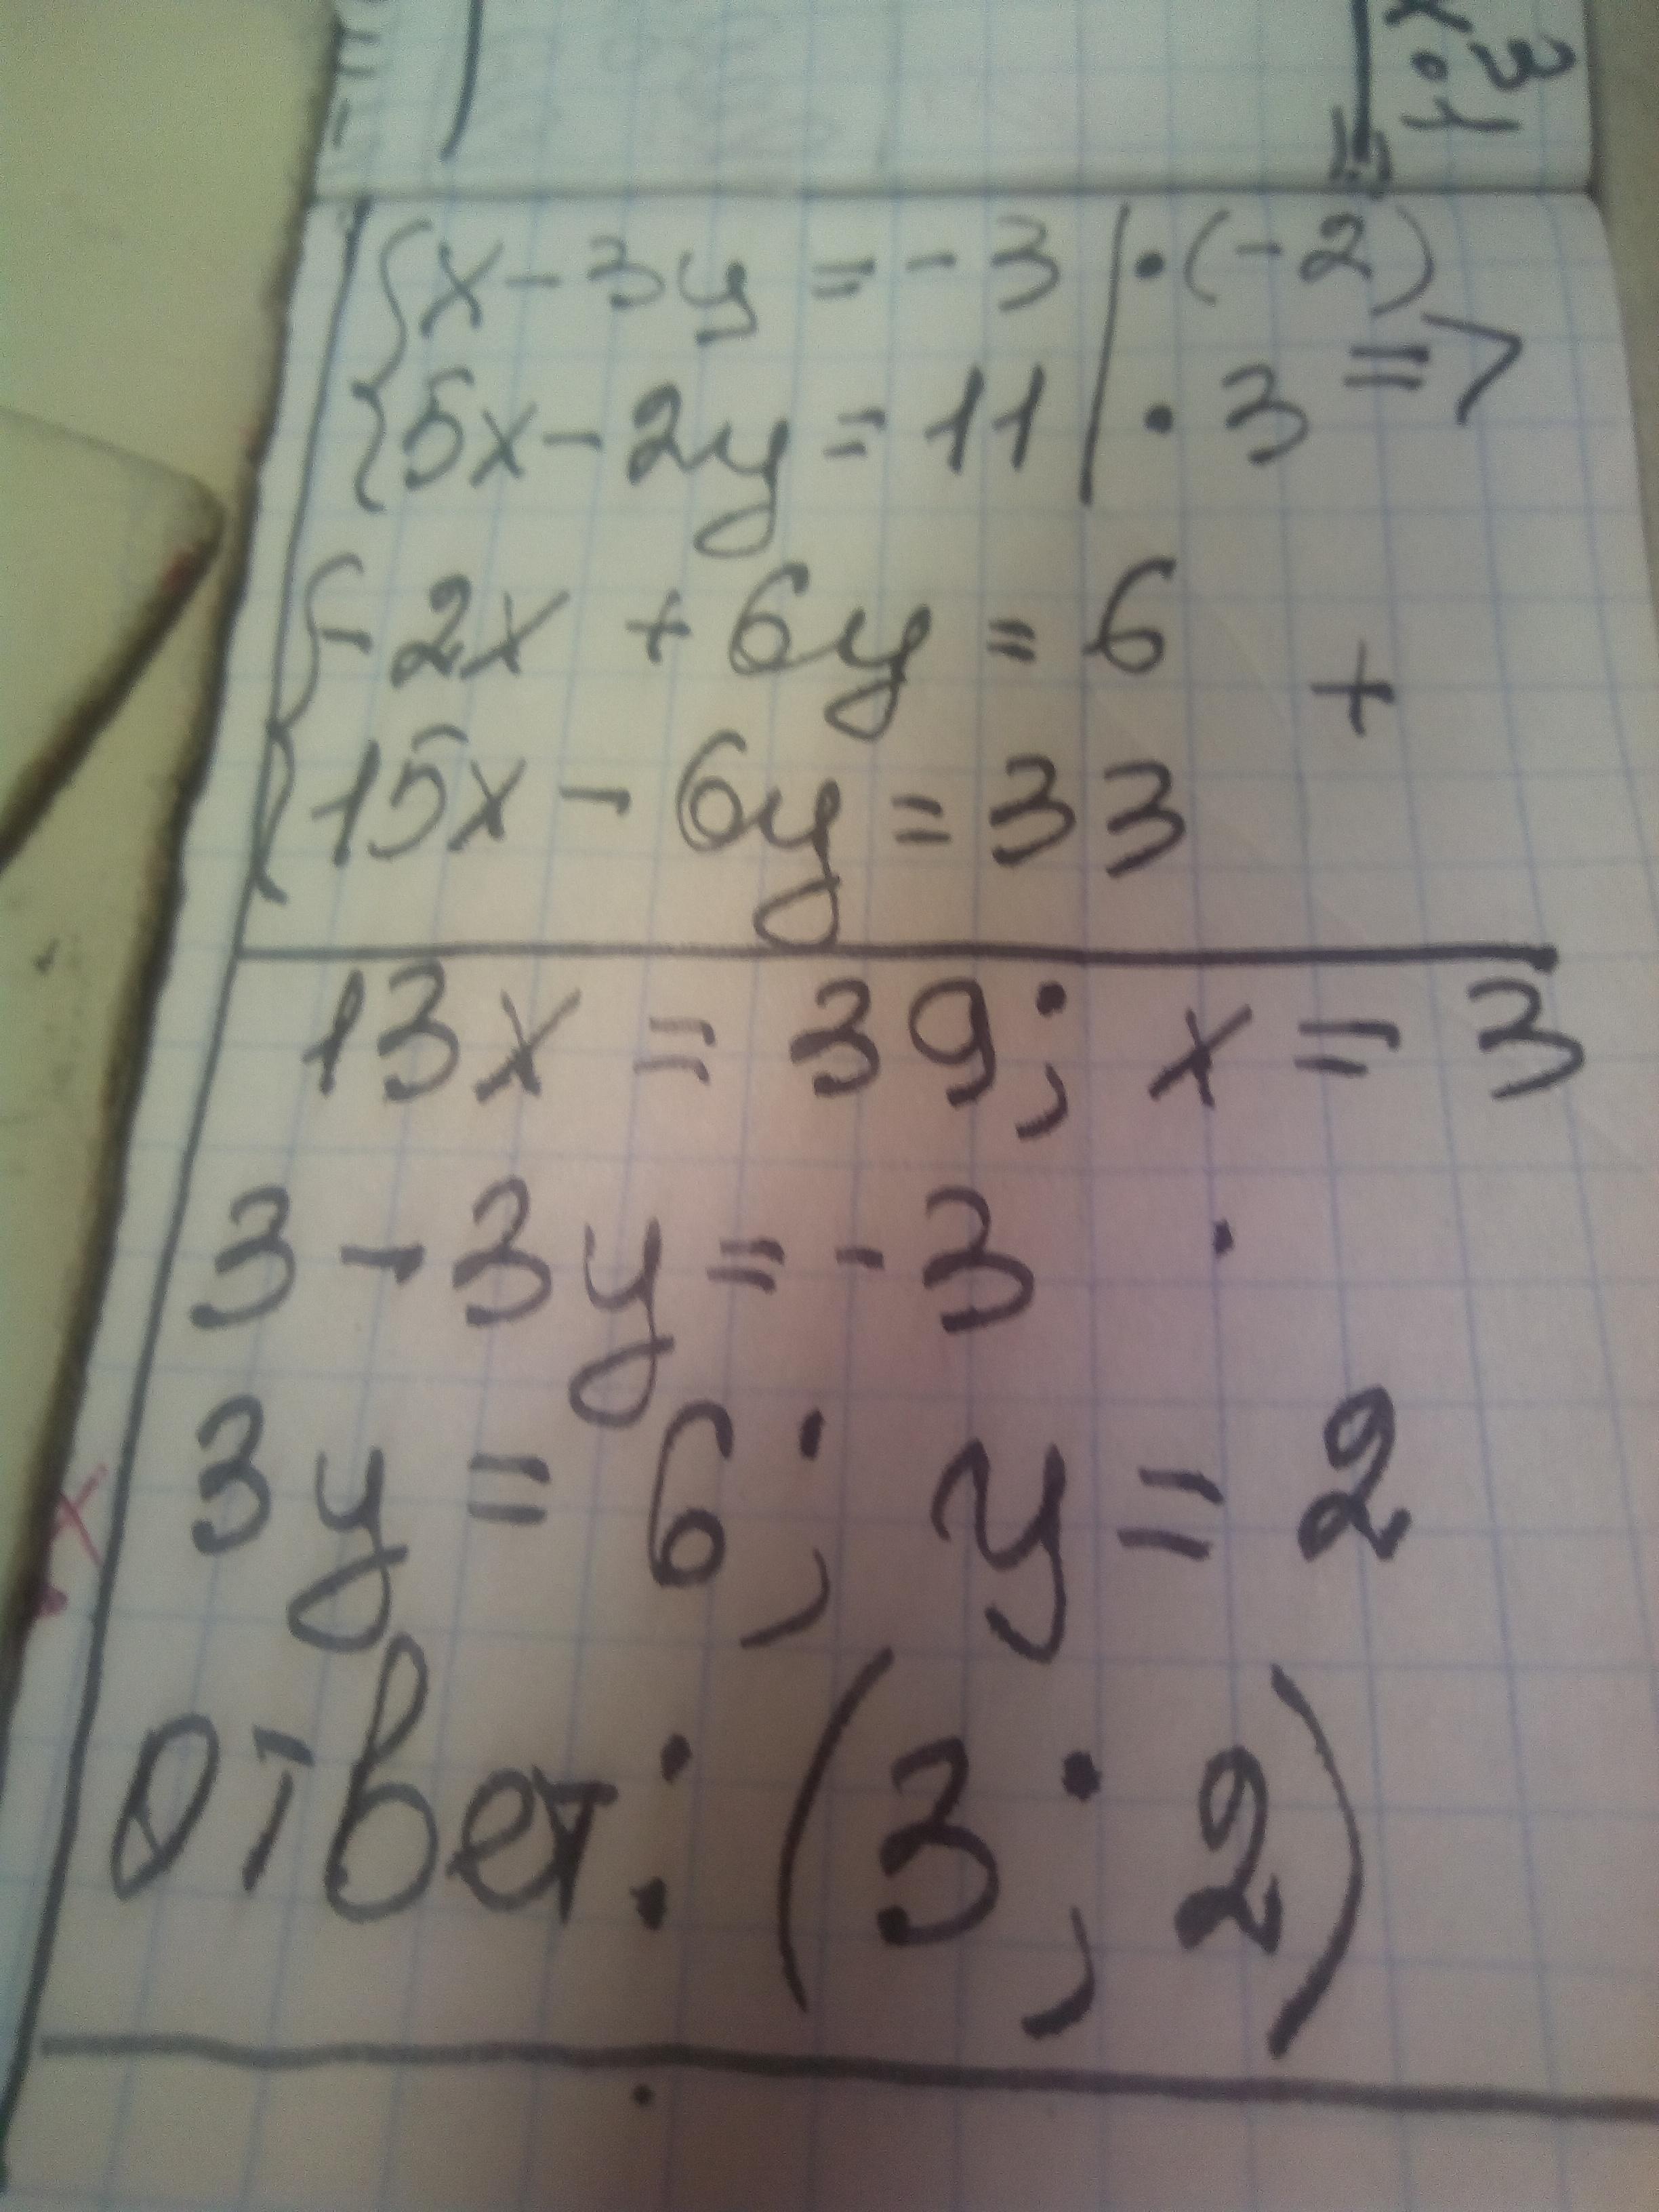 x - 3y = - 3 | · (-2)
5x - 2y = 11 | · 3 =>
- 2x + 6y = 6
+
15x - 6y = 33
13x = 39; x = 3
3 - 3y = - 3
3y = 6; y = 2
Ответ: (3; 2)